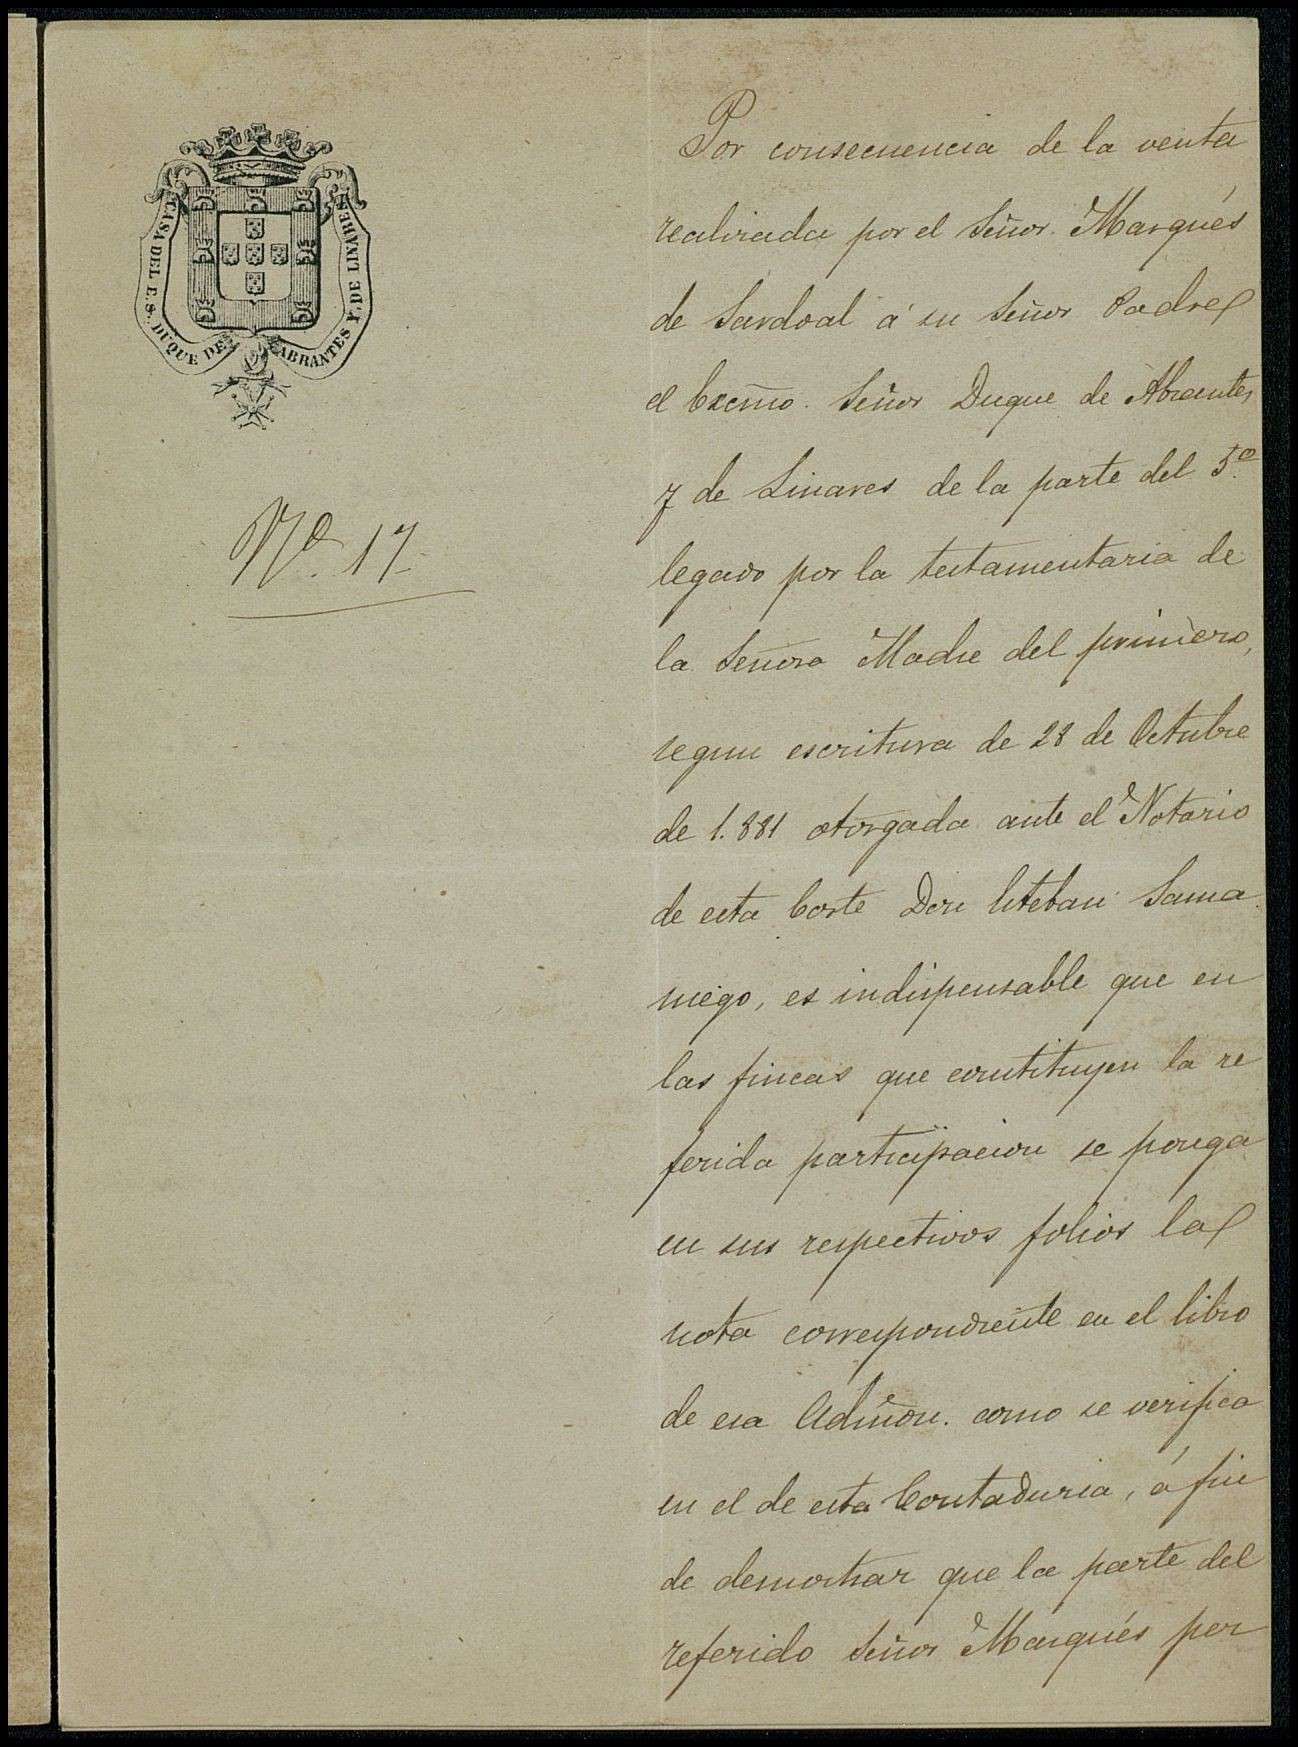 CASA DEL E.S. DUQUE DE ABRANTES Y DE LINARES
Nº. 17
Por consecuencia de la venta
realizada por el Señor Marqués
de Sardoal á su Señor Padre
el Excmo. Señor Duque de Abrantes
y de Linares de la parte del 5º.
legado por la testamentaria de
la Señora Madre del primero,
segun escritura de 28 de Octubre
de 1.881 otorgada ante el Notario
de esta Corte Don Esteban Sama
niego, es indispensable que en
las fincas que constituyen la re
ferida participacion se ponga
en sus respectivos folios la
nota correspondiente en el libro
de esa Admon. como se verifica
en el de esta Contaduria, á fin
de demostrar que la parte del
referido Señor Marqués per